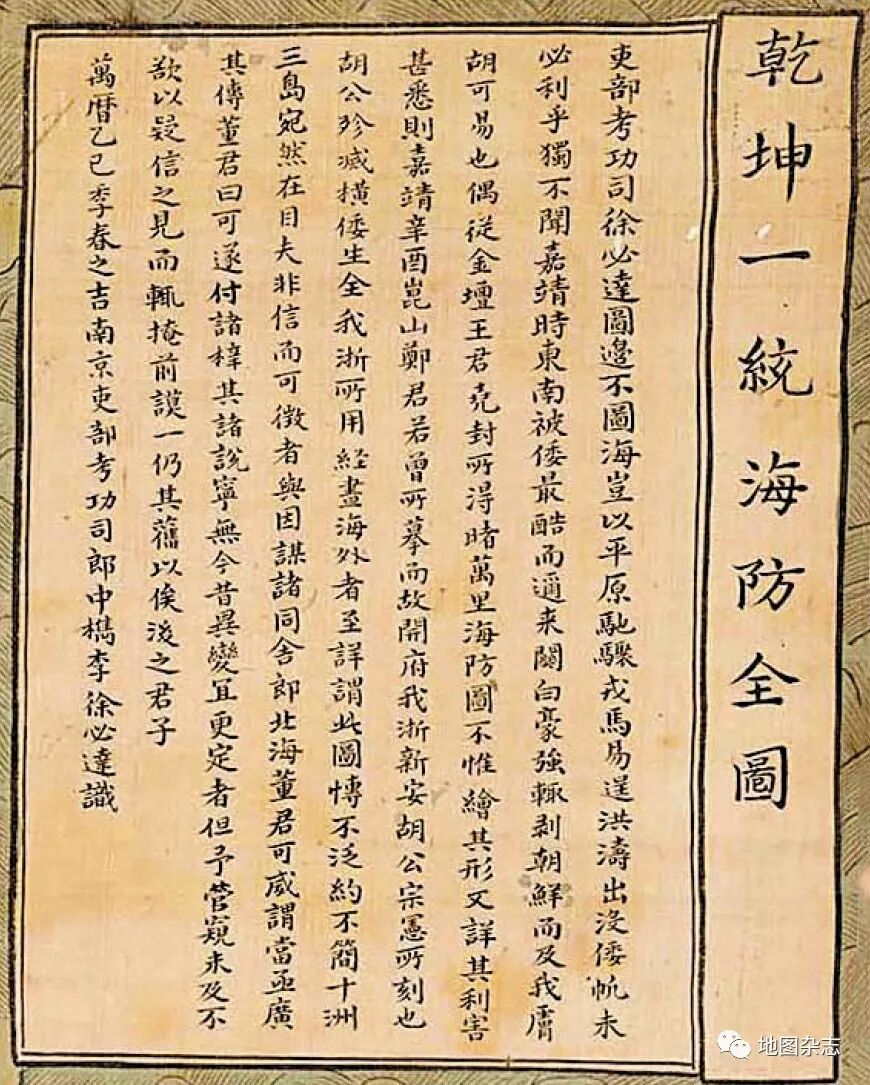 乾坤一統海防全圖
吏部考功司徐必達圖邊不圖海豈以平原馳驟戎馬易逞洪濤出沒倭帆未
必利乎獨不聞嘉靖時東南被倭最酷而邇来關白豪強輒剥朝鮮而及我膚
胡可易也偶從金壇王君尭封所淂睹萬里海防圖不惟繪其形又詳其利害
甚悉則嘉靖辛酉崑山鄭君若曾所摹而故開府我浙新安胡公宗憲所刻也
胡公殄滅橫倭生全我浙所用経畫海外者至詳謂此圖慱不泛約不簡十洲
三島宛然在目夫非信而可徴者與因謀諸同舍郎北海董君可威謂當亟廣
其傳董君曰可遂付諸梓其諸說寧無今昔異變宜更定者但予管窺未及不
敢以疑信之見而輒掩前謨一仍其舊以俟後之君子
萬曆乙巳季春之吉南京吏部考功司郎中檇李徐必達識
地图杂志